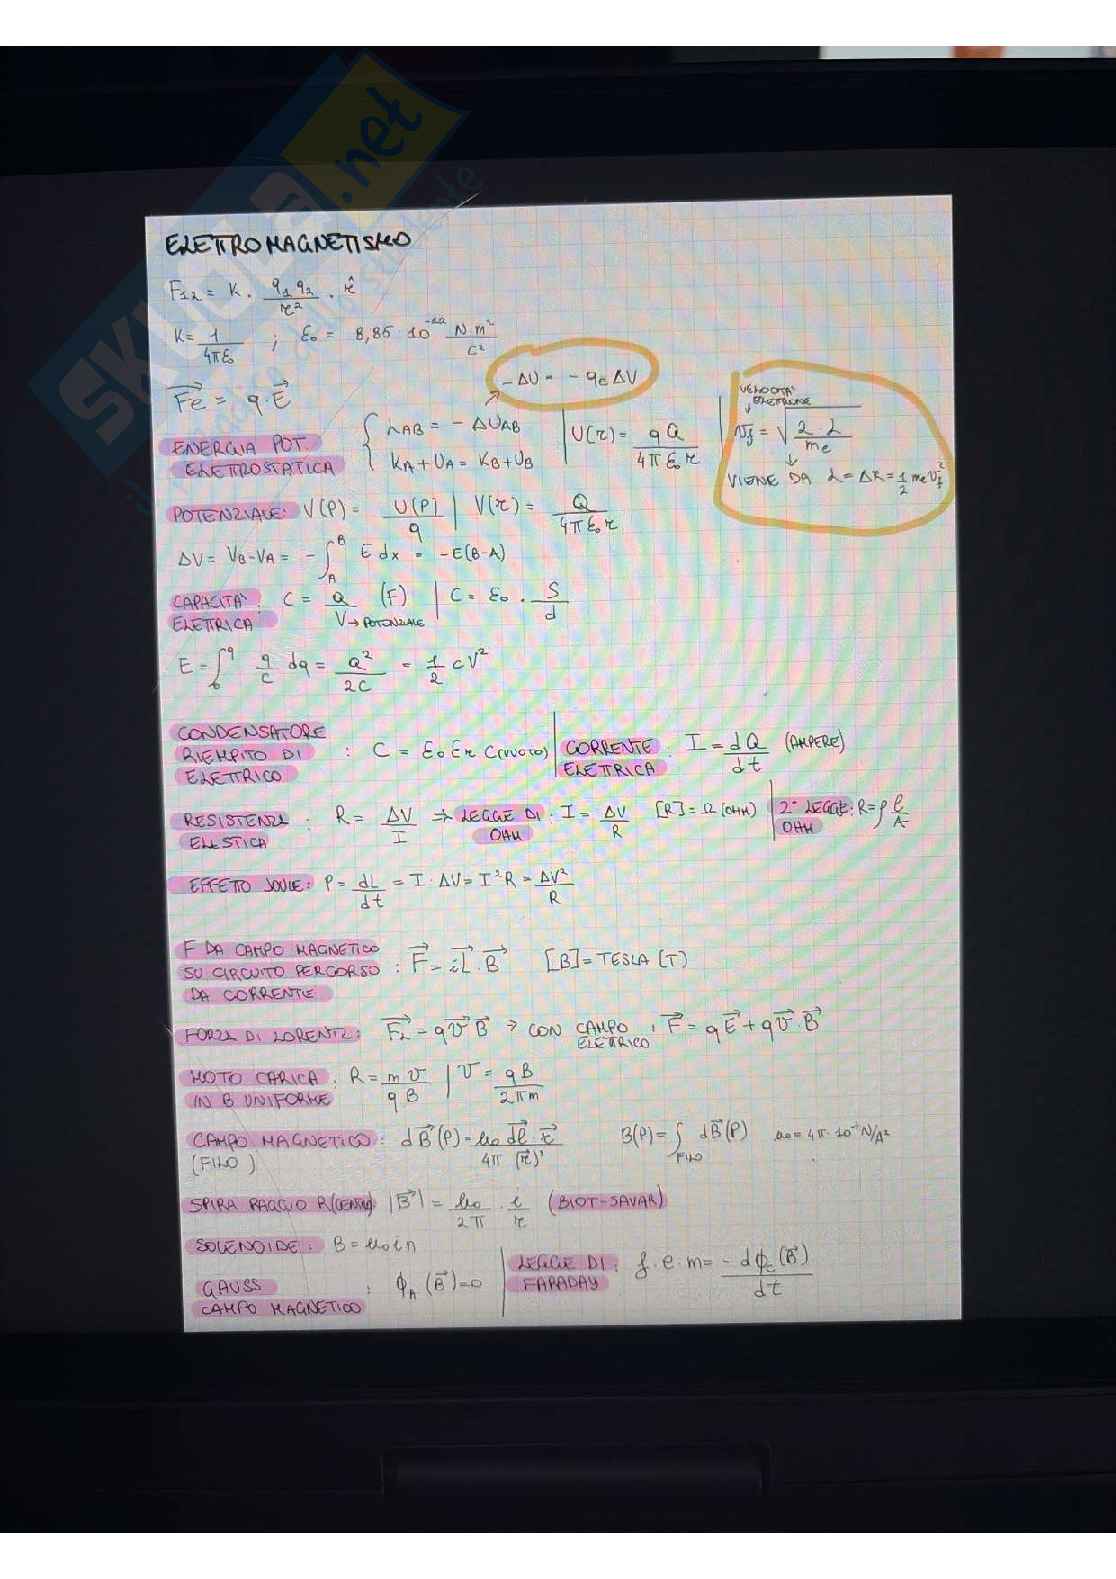 SKUOLA.net
ELETTROMAGNETISMO
F₁₂ = K · q₁q₂/r² · r̂
K = 1/4πε₀ ; ε₀ = 8,85 · 10⁻¹² N·m²/C²
-ΔU = - qₑ ΔV
Fe = q · E
VELOCITA' ELETTRONE
Vf = √(2·L/me)
VIENE DA L = ΔK = 1/2 me Vf²
ENERGIA POT. ELETROSTATICA
LAB = - ΔUAB
KA + UA = KB + UB
U(r) = qQ/4πε₀r
POTENZIALE: V(P) = U(P)/q | V(r) = Q/4πε₀r
ΔV = VB - VA = - ∫ᴬᴮ E dx = -E(B-A)
CAPACITA' ELETTRICA : C = Q/V (F) | C = ε₀ · S/d
V → POTENZIALE
E = ∫₀q q/C dq = Q²/2C = 1/2 CV²
CONDENSATORE RIEMPITO DI ELETTRICO : C = ε₀ εr C(vuoto) | CORRENTE ELETTRICA : I = dQ/dt (AMPERE)
RESISTENZA ELESTICA : R = ΔV/I ⇒ LEGGE DI OHM : I = ΔV/R [R] = Ω (OHM) | 2° LEGGE OHM : R = ρ l/A
EFFETTO JOULE: P = dL/dt = I · ΔV = I²R = ΔV²/R
F DA CAMPO MAGNETICO
SU CIRCUITO PERCORSO : F = iL · B [B] = TESLA (T)
DA CORRENTE
FORZA DI LORENTZ: FL = qvB ⇒ CON CAMPO ELETTRICO : F = qE + qv · B
MOTO CARICA IN B UNIFORME : R = mv/qB | v = qB/2πm
CAMPO MAGNETICO: (FILO) dB(P) = μ₀/4π dl · r/(r)³ B(P) = ∫FILO dB(P) μ₀ = 4π · 10⁻⁷ N/A²
SPIRA RAGGIO R (CENTRO) |B| = μ₀/2π · i/r (BIOT-SAVAR)
SOLENOIDE: B = μ₀in
GAUSS CAMPO MAGNETICO : ϕA (B) = 0 | LEGGE DI FARADAY : f.e.m = - dϕc(B)/dt